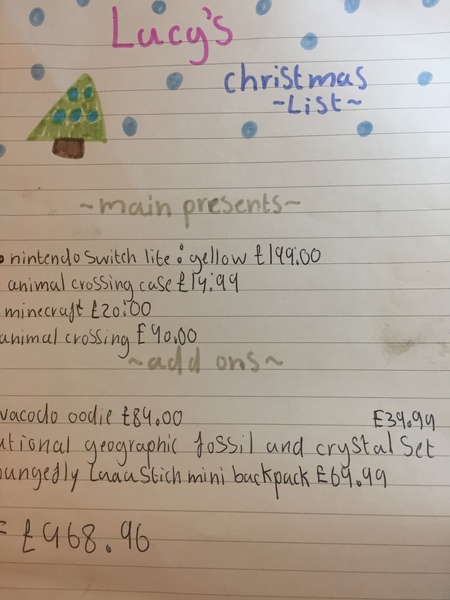 Lucy's
christmas
~List~
~main presents~
nintendo switch lite : yellow £199.00
animal crossing case £14.99
minecraft £20.00
animal crossing £40.00
~add ons~
vacodo oodie £84.00 £39.99
ational geographic fossil and crystal set
oungefly stich mini backpack £69.99
= £468.96